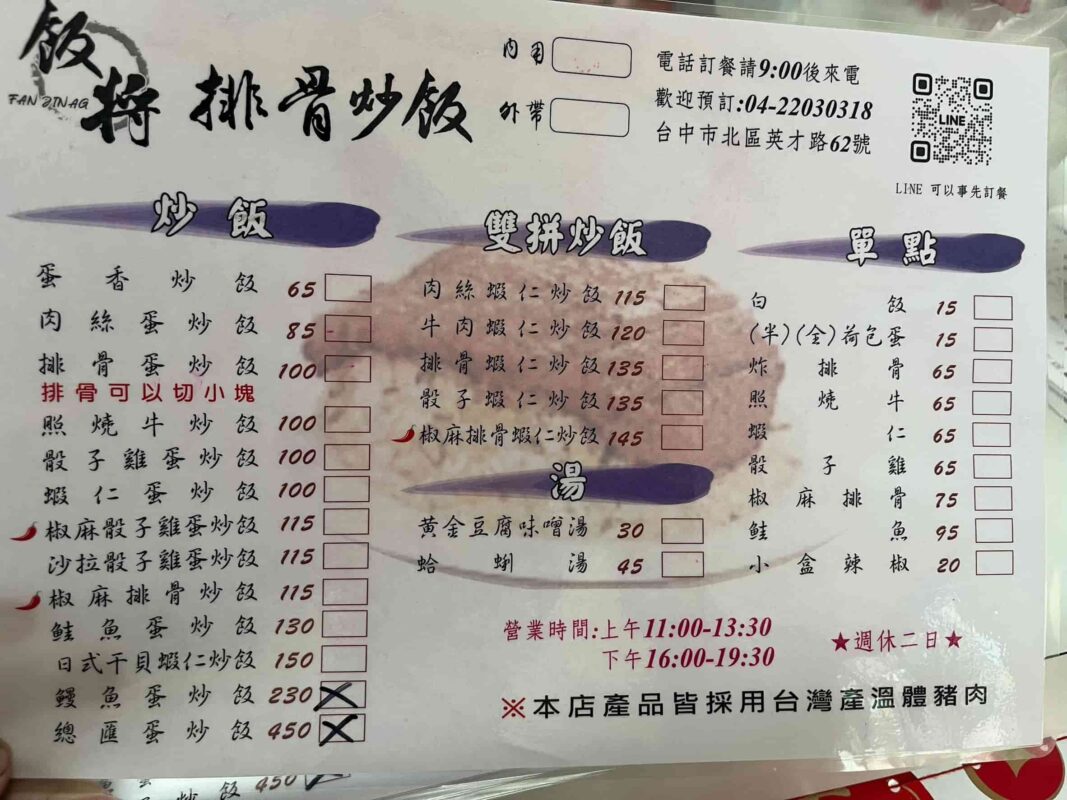 飯將
FAN JINAG
排骨炒飯
內用
外帶
電話訂餐請9:00後來電
歡迎預訂:04-22030318
台中市北區英才路62號
LINE
LINE 可以事先訂餐
炒飯
蛋香炒飯 65
肉絲蛋炒飯 85
排骨蛋炒飯 100
排骨可以切小塊
照燒牛炒飯 100
骰子雞蛋炒飯 100
蝦仁蛋炒飯 100
椒麻骰子雞蛋炒飯 115
沙拉骰子雞蛋炒飯 115
椒麻排骨炒飯 115
鮭魚蛋炒飯 130
日式干貝蝦仁炒飯 150
鰻魚蛋炒飯 230
總匯蛋炒飯 450
雙拼炒飯
肉絲蝦仁炒飯 115
牛肉蝦仁炒飯 120
排骨蝦仁炒飯 135
骰子蝦仁炒飯 135
椒麻排骨蝦仁炒飯 145
湯
黃金豆腐味噌湯 30
蛤蜊湯 45
單點
白飯 15
(半)(全)荷包蛋 15
炸排骨 65
照燒牛 65
蝦仁 65
骰子雞 65
椒麻排骨 75
鮭魚 95
小盒辣椒 20
營業時間:上午11:00-13:30
下午16:00-19:30
★週休二日★
※本店產品皆採用台灣產溫體豬肉
炒飯 450